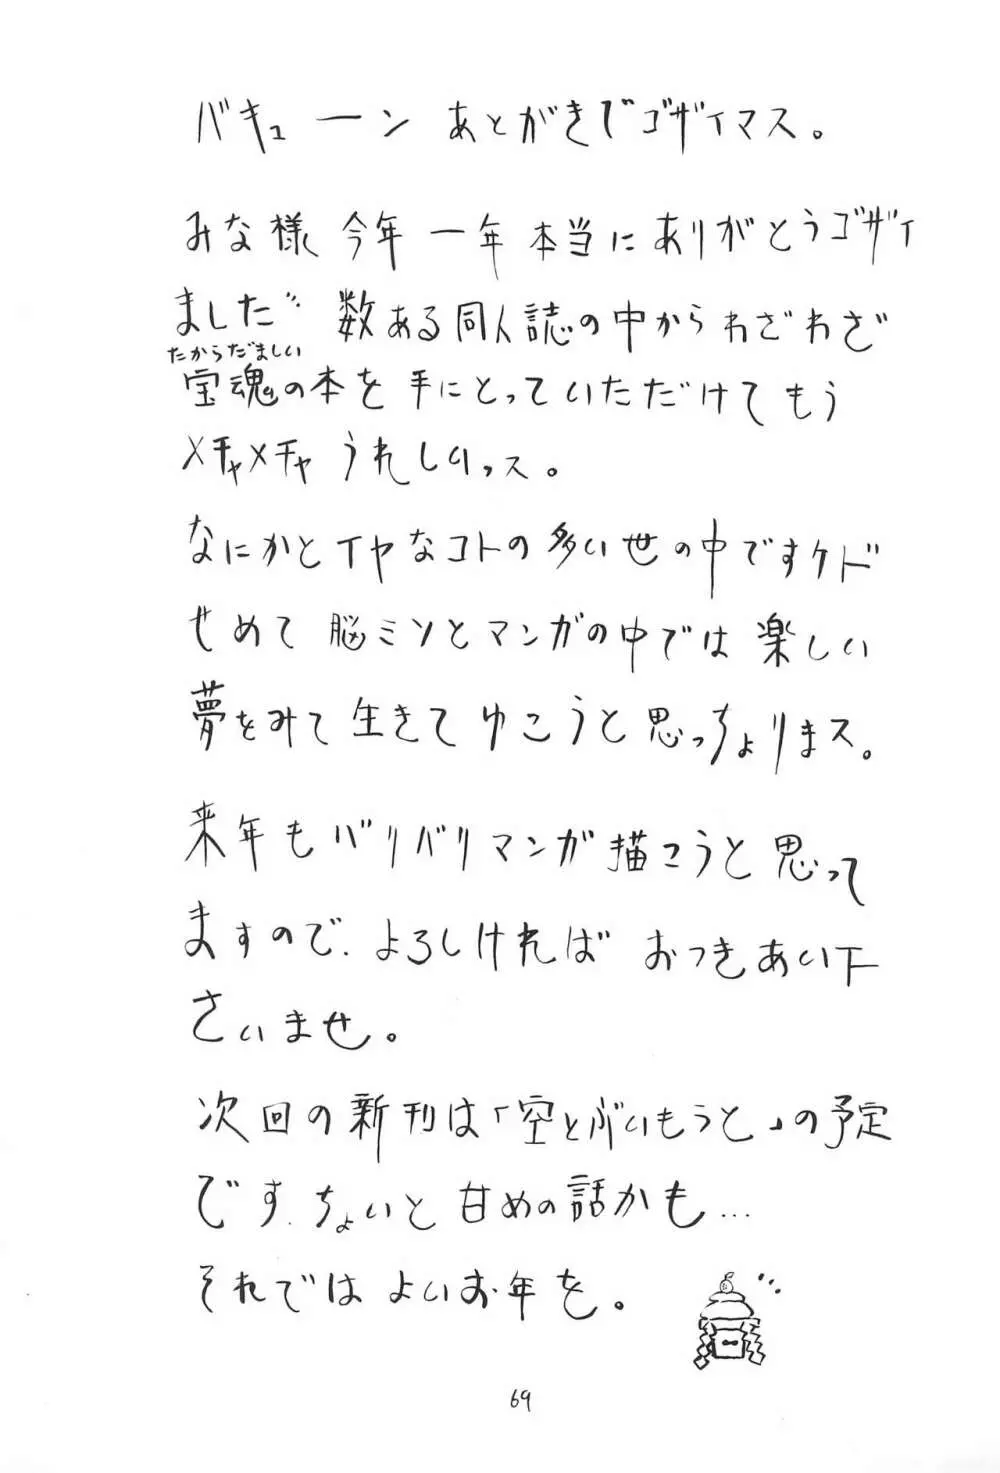 バキューン あとがきでゴザイマス。
みな様 今年 一年 本当に ありがとうゴザイ
ました゛ 数ある同人誌の中からわざわざ
たからだましい
宝魂の本を 手にとっていただけてもう
メチャメチャ うれしいっス。
なにかとイヤなコトの多い世の中ですケド
せめて 脳ミソとマンガの中では 楽しい
夢をみて 生きて ゆこうと思っちょりまス。
来年もバリバリマンガ描こうと思って
ますので、よろしければ おつきあい下
さいませ。
次回の新刊は「空とぶいもうと」の予定
です.ちょいと 甘めの話かも...
それでは よいお年を。
69